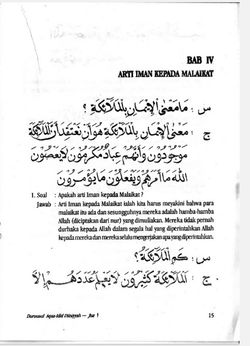 BAB IV
ARTI IMAN KEPADA MALAIKAT
س : مَا مَعْنَى الْإِيْمَانِ بِالْمَلَائِكَةِ ؟
ج : مَعْنَى الْإِيْمَانِ بِالْمَلَائِكَةِ هُوَ أَنْ نَعْتَقِدَ أَنَّ الْمَلَائِكَةَ
مَوْجُوْدُوْنَ وَأَنَّهُمْ عِبَادٌ مُكْرَمُوْنَ لَا يَعْصُوْنَ
اللهَ مَا أَمَرَهُمْ وَيَفْعَلُوْنَ مَا يُؤْمَرُوْنَ
1. Soal : Apakah arti Iman kepada Malaikat ?
Jawab : Arti Iman kepada Malaikat ialah kita harus meyakini bahwa para
malaikat itu ada dan sesungguhnya mereka adalah hamba-hamba
Allah (diciptakan dari nur) yang dimuliakan. Mereka tidak pernah
durhaka kepada Allah dalam segala hal yang diperintahkan Allah
kepada mereka dan mereka selalu mengerjakan apa yang diperintahkan.
س : كَمِ الْمَلَائِكَةُ ؟
ج : الْمَلَائِكَةُ كَثِيْرُوْنَ لَا يَعْلَمُ عَدَدَهُمْ إِلَّا
Durusul Aqa-idid Diniyyah — Juz 1
15